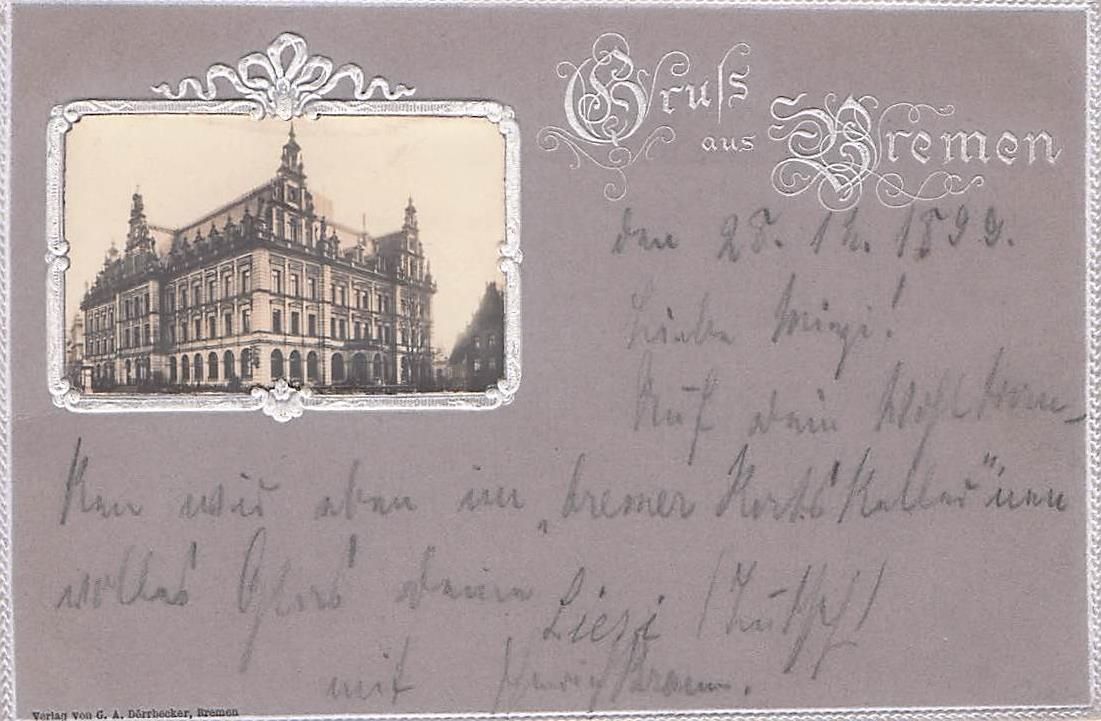 Gruss
aus Bremen
den 28. 12. 1899.
Liebe Mizi!
Auf dein Wohl tran-
ken wir eben im
"bremer Rats Keller" nen
volles Glas deine
Liesi
mit
Verlag von G. A. Dörrbecker, Bremen